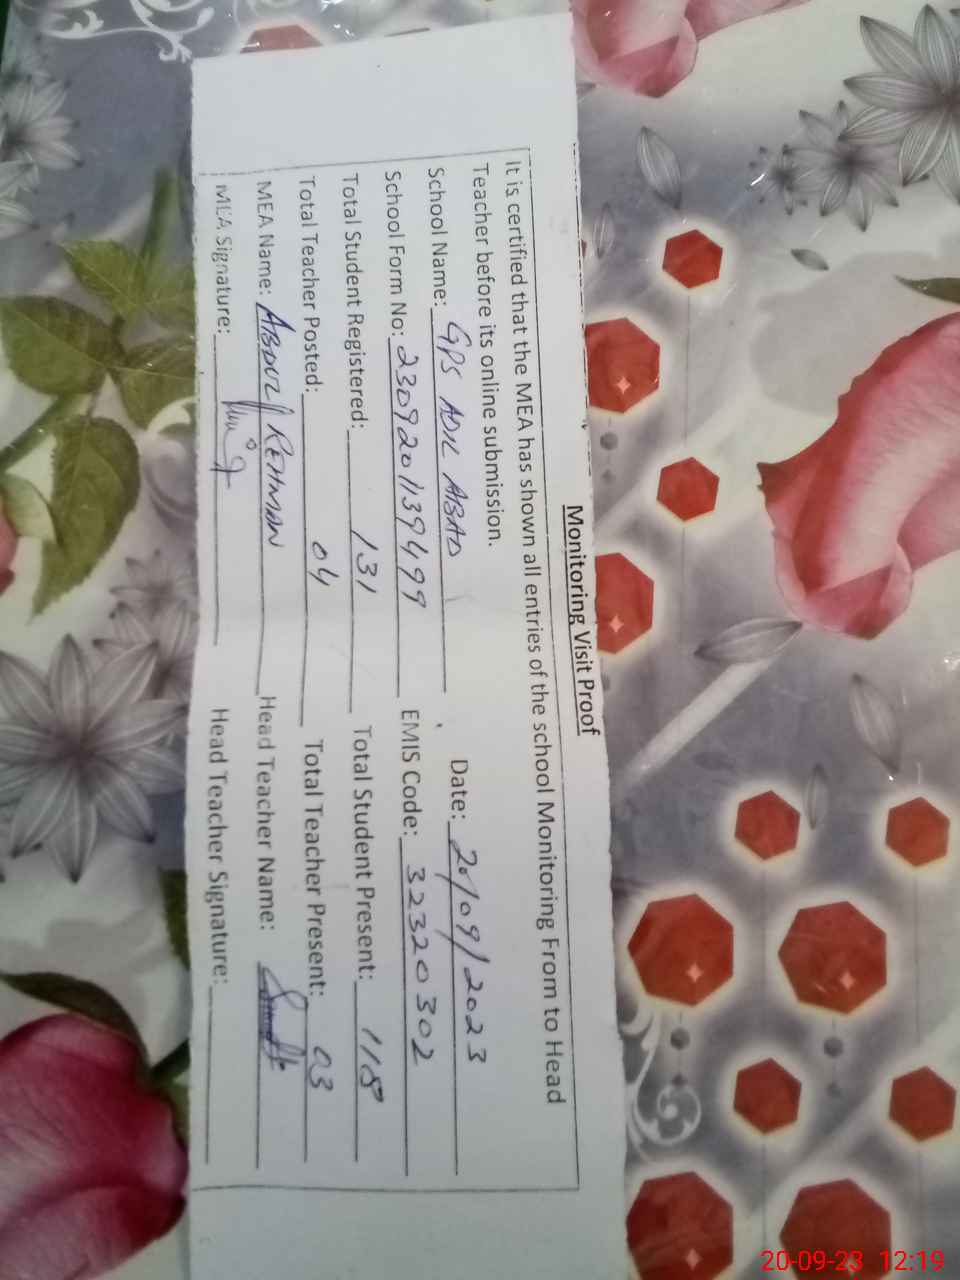 Monitoring Visit Proof
It is certified that the MEA has shown all entries of the school Monitoring From to Head
Teacher before its online submission.
School Name: GPS ADIL ABAD Date: 20/09/2023
School Form No: 230920113949 9 EMIS Code: 32320302
Total Student Registered: 131 Total Student Present: 118
Total Teacher Posted: 04 Total Teacher Present: 03
MEA Name: ABDUL REHMAN Head Teacher Name:
MEA Signature: Head Teacher Signature:
20-09-23 12:19